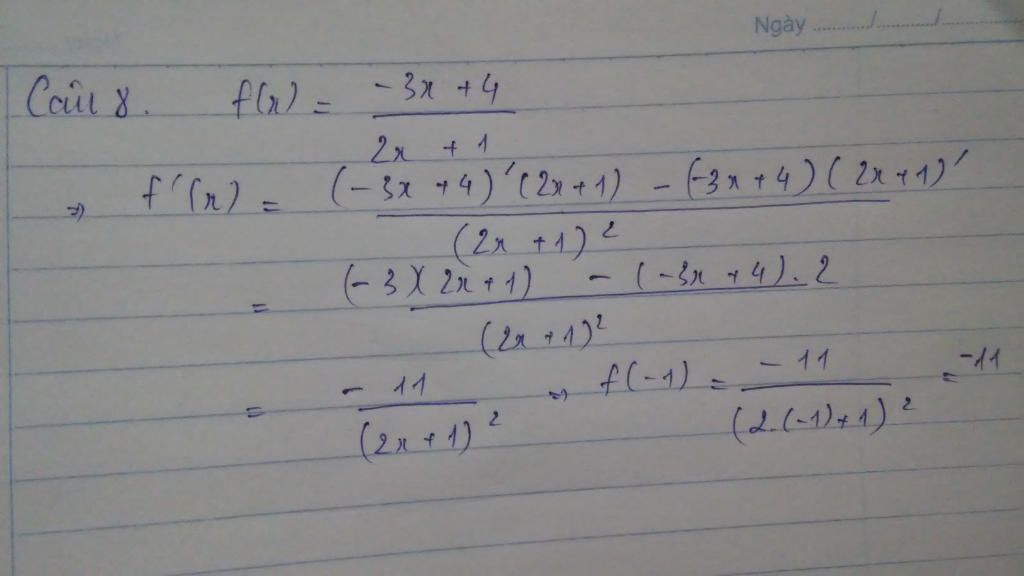 Ngày ........../........../..........
Câu 8. f(x) = (-3x + 4)/(2x + 1)
=> f'(x) = ((-3x + 4)'(2x + 1) - (-3x + 4)(2x + 1)')/(2x + 1)²
= ((-3)(2x + 1) - (-3x + 4).2)/(2x + 1)²
= -11/(2x + 1)² => f(-1) = -11/(2.(-1) + 1)² = -11